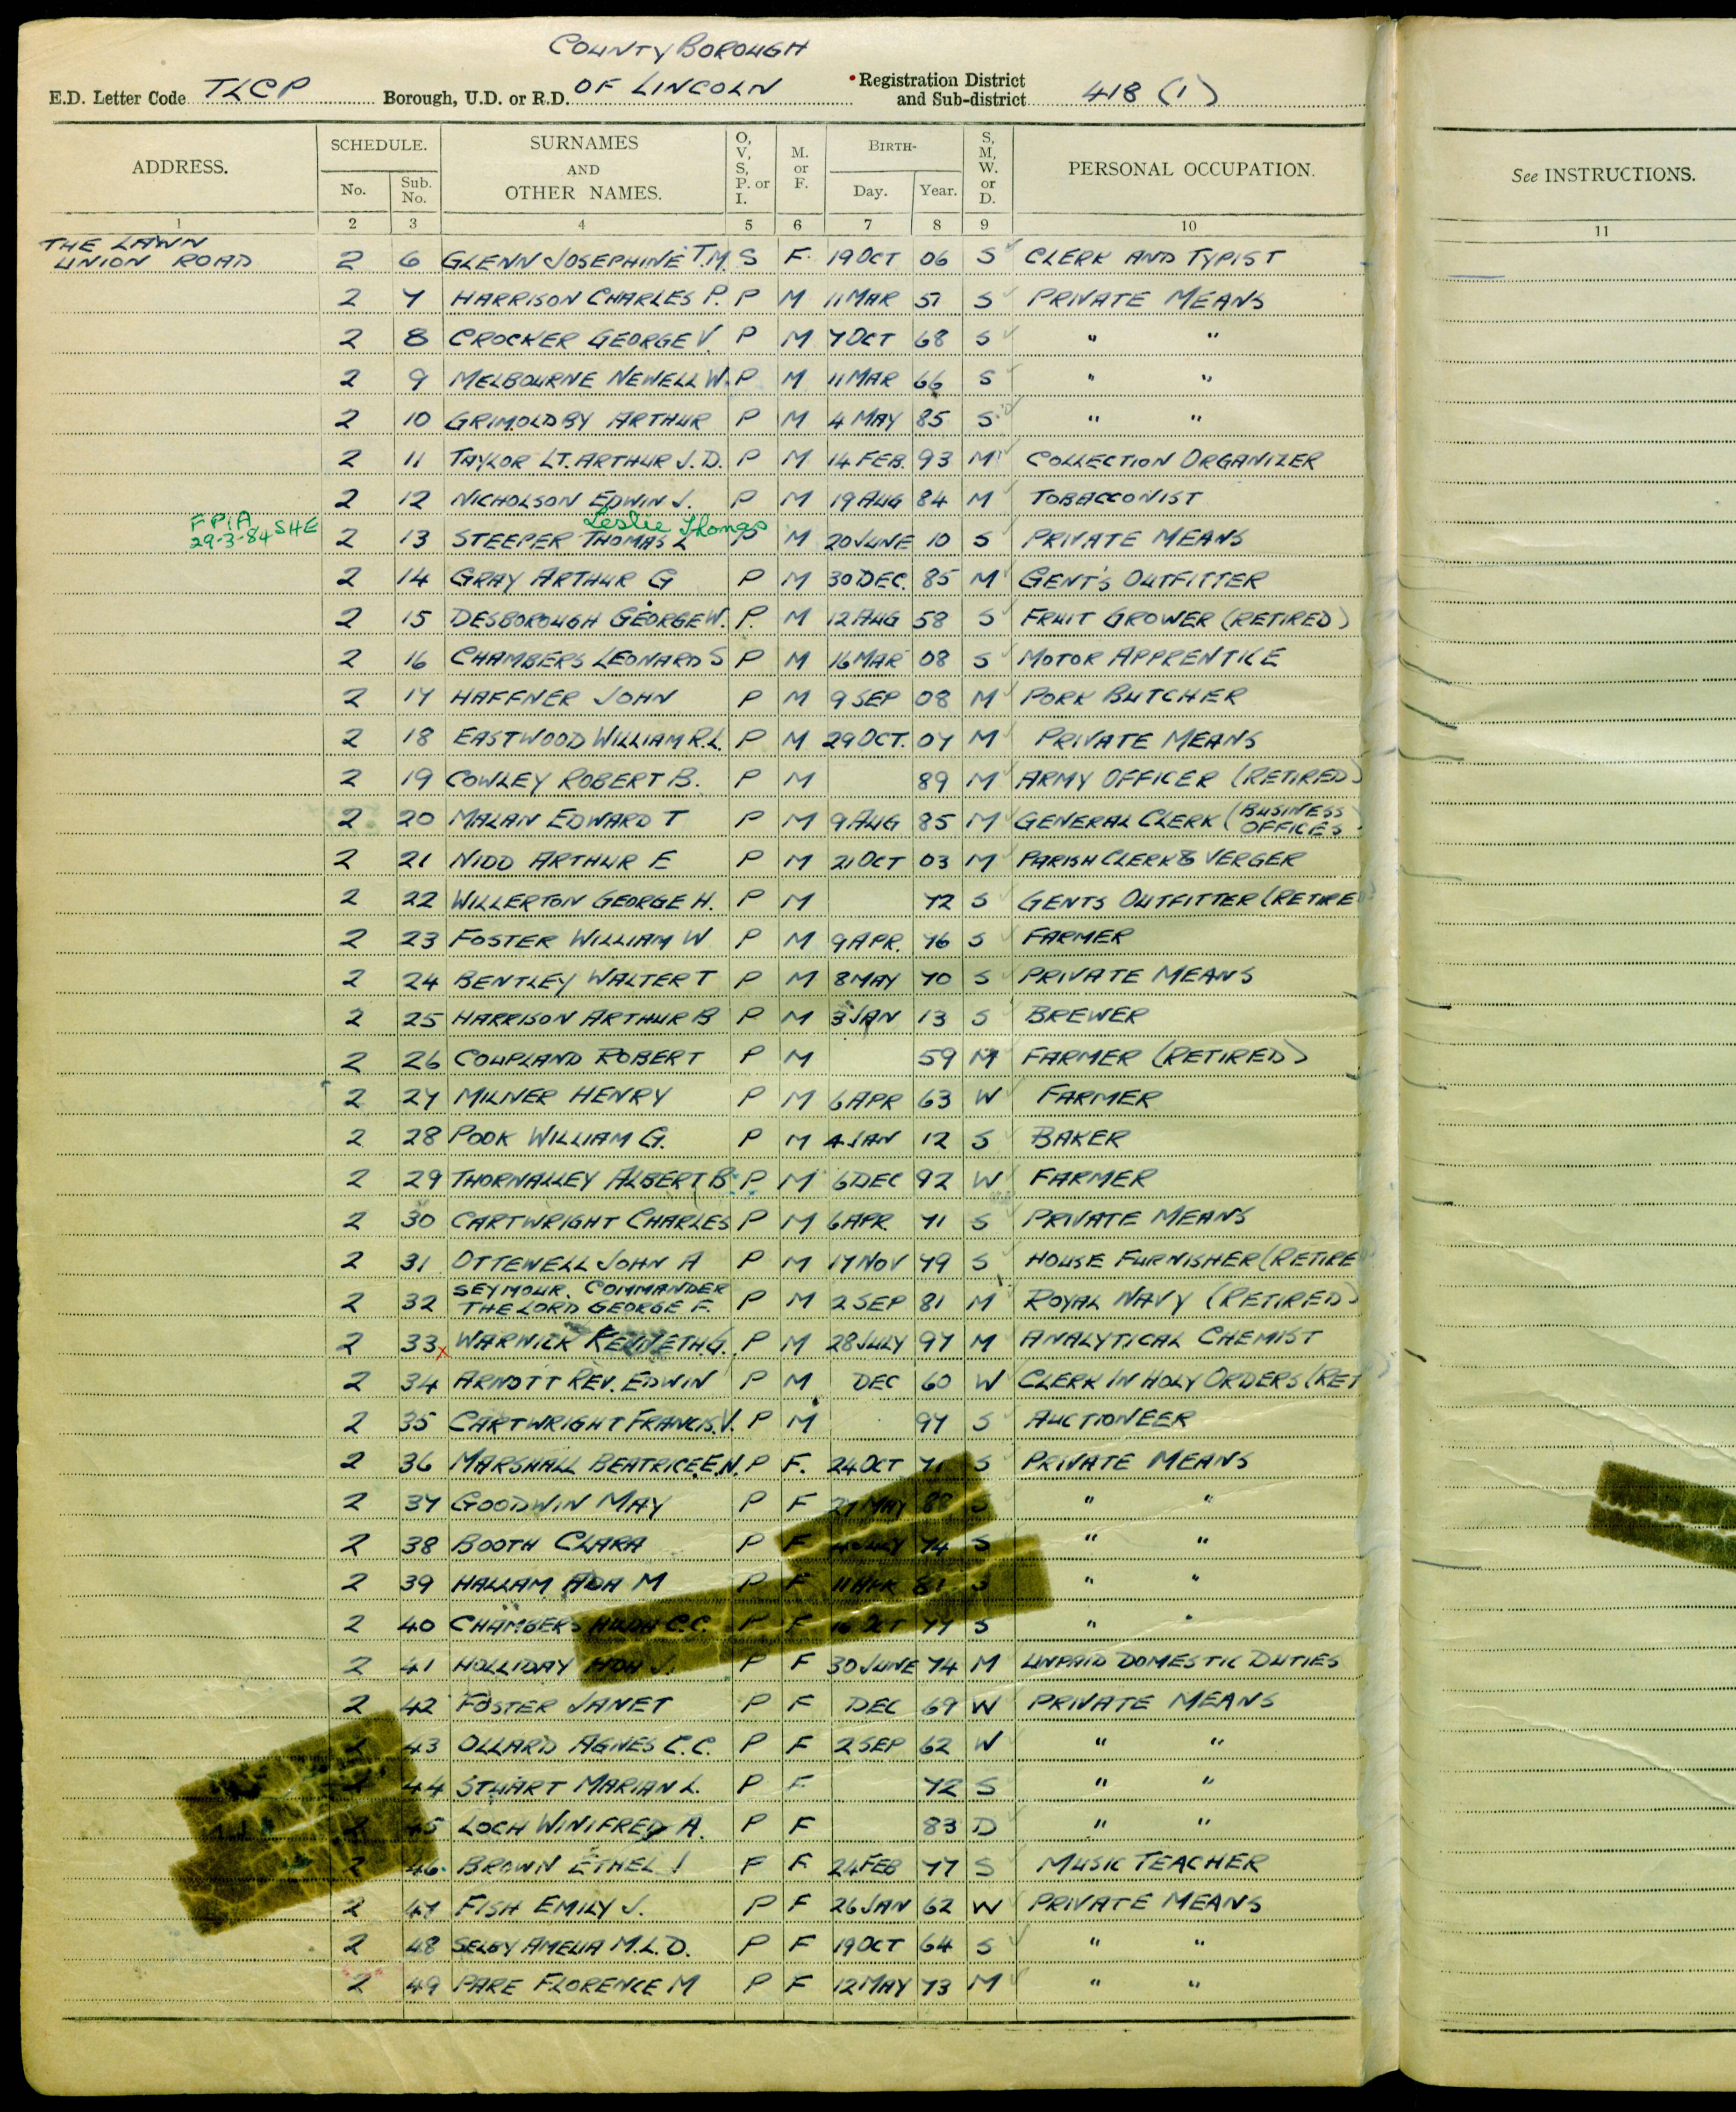 COUNTY BOROUGH
E.D. Letter Code TLCP Borough, U.D. or R.D. OF LINCOLN Registration District and Sub-district 418 (1)
ADDRESS. SCHEDULE. No. Sub. No. SURNAMES AND OTHER NAMES. O, V, S, P. or I. M. or F. BIRTH- Day. Year. S, M, W. or D. PERSONAL OCCUPATION. See INSTRUCTIONS.
1 2 3 4 5 6 7 8 9 10 11
THE LAWN
UNION ROAD 2 6 GLENN JOSEPHINE T.M. S F. 19 OCT 06 S CLERK AND TYPIST
2 7 HARRISON CHARLES P. P M 11 MAR 57 S PRIVATE MEANS
2 8 CROCKER GEORGE V. P M 7 OCT 68 S " "
2 9 MELBOURNE NEWELL W. P M 11 MAR 66 S " "
2 10 GRIMOLDBY ARTHUR P M 4 MAY 85 S " "
2 11 TAYLOR LT. ARTHUR J.D. P M 14 FEB. 93 M COLLECTION ORGANIZER
2 12 NICHOLSON EDWIN J. P M 19 AUG 84 M TOBACCONIST
Leslie Thomas
F P/A
29-3-84 SHE 2 13 STEEPER THOMAS L P M 20 JUNE 10 S PRIVATE MEANS
2 14 GRAY ARTHUR G P M 30 DEC. 85 M GENT'S OUTFITTER
2 15 DESBOROUGH GEORGE W. P. M 12 AUG 58 S FRUIT GROWER (RETIRED)
2 16 CHAMBERS LEONARD S P M 16 MAR 08 S MOTOR APPRENTICE
2 17 HAFFNER JOHN P M 9 SEP 08 M PORK BUTCHER
2 18 EASTWOOD WILLIAM R.L. P M 29 OCT. 07 M PRIVATE MEANS
2 19 COWLEY ROBERT B. P M 89 M ARMY OFFICER (RETIRED)
2 20 MALAN EDWARD T P M 9 AUG 85 M GENERAL CLERK (BUSINESS OFFICES)
2 21 NIDD ARTHUR E P M 21 OCT 03 M PARISH CLERK & VERGER
2 22 WILLERTON GEORGE H. P M 72 S GENTS OUTFITTER (RETIRED
2 23 FOSTER WILLIAM W P M 9 APR. 76 S FARMER
2 24 BENTLEY WALTER T P M 8 MAY 70 S PRIVATE MEANS
2 25 HARRISON ARTHUR B P M 3 JAN 13 S BREWER
2 26 COUPLAND ROBERT P M 59 M FARMER (RETIRED)
2 27 MILNER HENRY P M 6 APR 63 W FARMER
2 28 POOK WILLIAM G. P M 4 JAN 12 S BAKER
2 29 THORNALLEY ALBERT B. P M 6 DEC 92 W FARMER
2 30 CARTWRIGHT CHARLES P M 6 APR 71 S PRIVATE MEANS
2 31 OTTEWELL JOHN A P M 17 NOV 79 S HOUSE FURNISHER (RETIRE
2 32 SEYMOUR. COMMANDER THE LORD GEORGE F. P M 2 SEP 81 M ROYAL NAVY (RETIRED)
2 33 x WARWICK KENNETH G. P M 28 JULY 97 M ANALYTICAL CHEMIST
2 34 ARNOTT REV. EDWIN P M DEC 60 W CLERK IN HOLY ORDERS (RET
2 35 CARTWRIGHT FRANCIS V. P M 97 S AUCTIONEER
2 36 MARSHALL BEATRICE E.N. P F. 24 OCT 71 S PRIVATE MEANS
2 37 GOODWIN MAY P F 27 MAY 88 S " "
2 38 BOOTH CLARA P F 4 JULY 74 S " "
2 39 HALLAM ADA M P F 11 APR 81 S " "
2 40 CHAMBERS HILDA C.C. P F 16 OCT 77 S " "
2 41 HOLLIDAY ADA J. P F 30 JUNE 74 M UNPAID DOMESTIC DUTIES
2 42 FOSTER JANET P F DEC 69 W PRIVATE MEANS
2 43 OLLARD AGNES C.C. P F 2 SEP 62 W " "
2 44 STUART MARIAN L. P F 72 S " "
2 45 LOCH WINIFRED A. P F 83 D " "
2 46 BROWN ETHEL J P F 24 FEB 77 S MUSIC TEACHER
2 47 FISH EMILY J. P F 26 JAN 62 W PRIVATE MEANS
2 48 SELBY AMELIA M.L.D. P F 19 OCT 64 S " "
2 49 PARE FLORENCE M P F 12 MAY 73 M " "